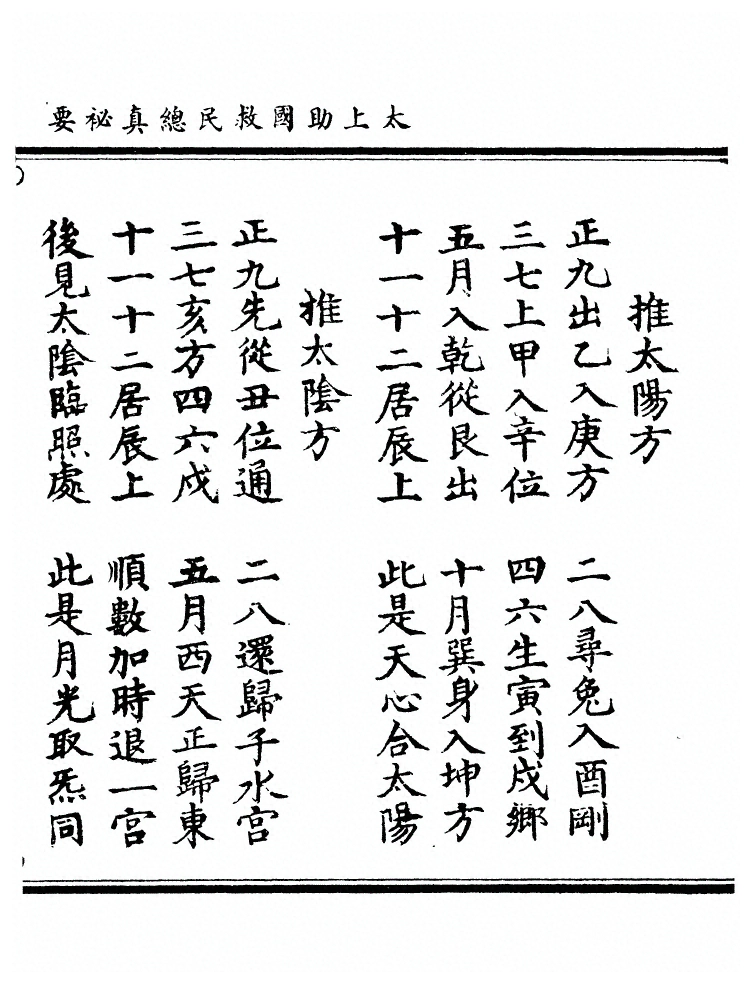 太上助國救民總真祕要
推太陽方
正九出乙入庚方 二八尋兔入酉剛
三七上甲入辛位 四六生寅到戍鄉
五月入乾從艮出 十月巽身入坤方
十一十二居辰上 此是天心合太陽
推太陰方
正九先從丑位通 二八還歸子水宮
三七亥方四六戍 五月西天正歸東
十一十二居辰上 順數加時退一宮
後見太陰臨照處 此是月光取炁同